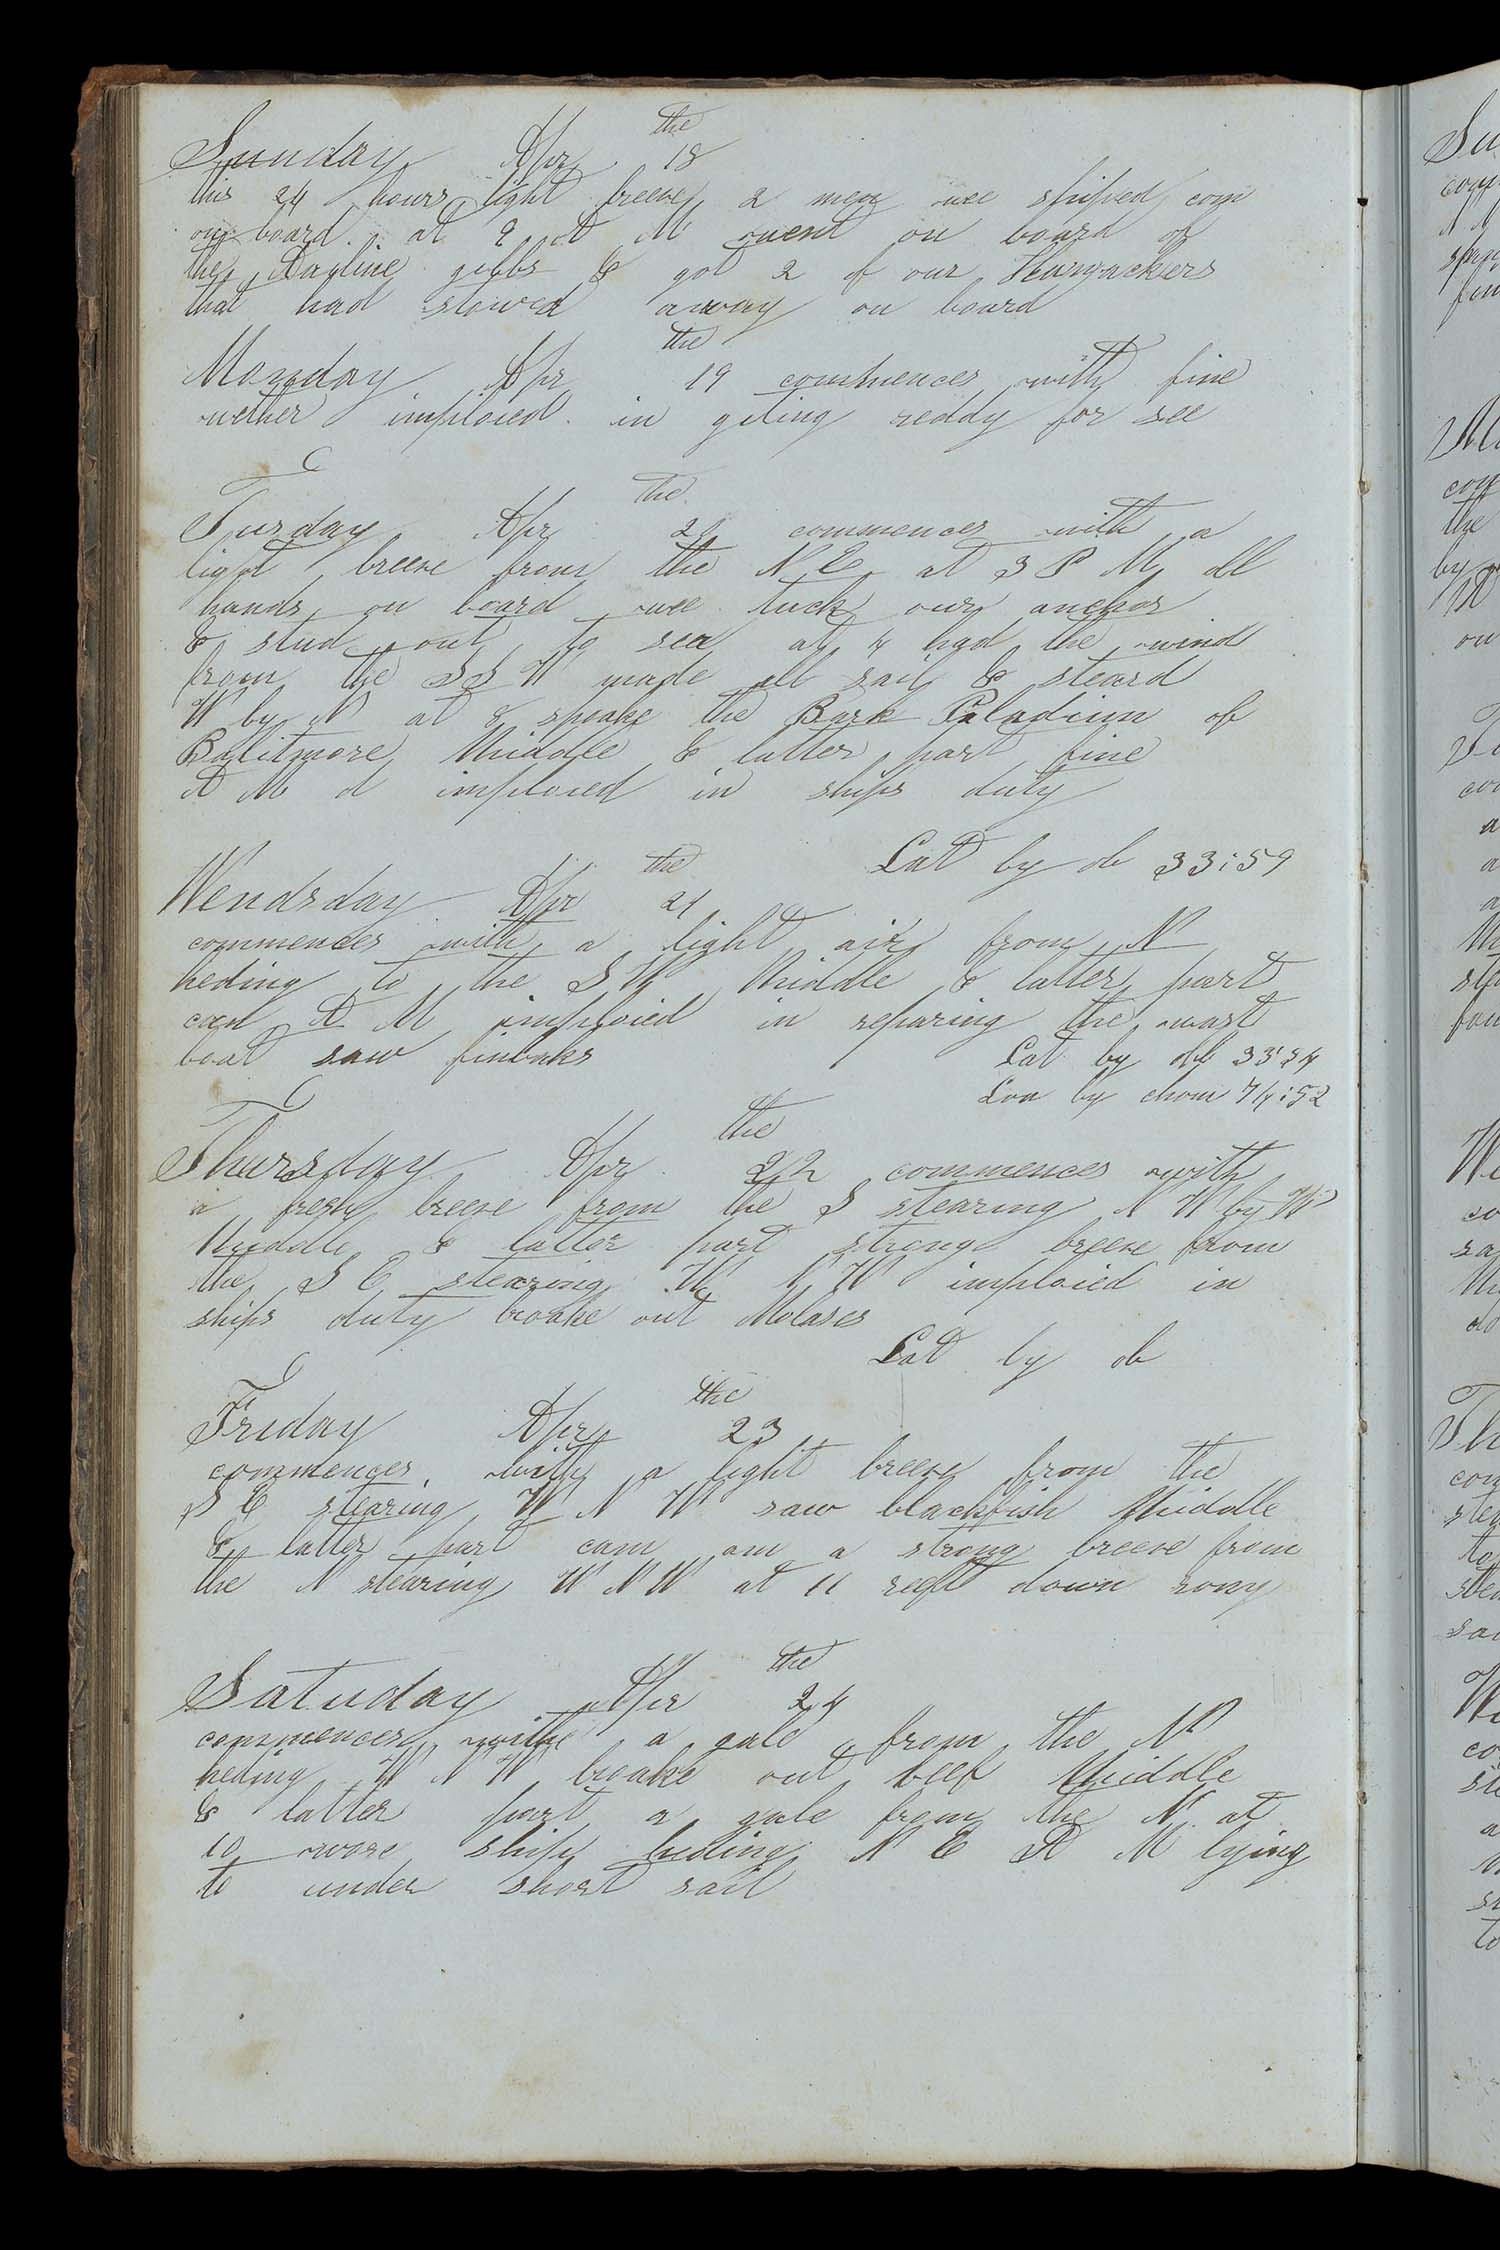 the
Sunday Apr 18
this 24 hours light breeze 2 men wee shiped com
on board. at 9 at M went on board of
the gibbs & got 2 of our
that had stowed away on board
the
Monday Apr 19 commences with fine
wether imploied in geting reddy for see
the
Tusday Apr 20 commences with a
light breeze from the N E at 3 P M all
hands on board wee tuck our anchor
& stud out to sea at 4 had the wind
from the S S W made all sail & steard
W by N at 8 spoake the Bark Paladium of
Balitmore Middle & latter part fine
A M d imploied in ships duty
Lat by ob 33:59
the
Wendsday Apr 21
commences with a light air from N
heding to the S W Middle & latter part
A M imploied in reparing the wast
boat saw finbaks
Lat by ob 33:34
Lon by chom 74:52
the
Thursday Apr 22 commences with
a fresh breeze from the S stearing N W by W
Middle & latter part strong breeze from
the S E stearing W N W imploied in
ships duty broake out Molases
Lat by ob
the
Friday Apr 23
commences with a light breeze from the
S E stearing W N W saw blackfish Middle
& latter part cam om a strong breeze from
the N stearing W N W at 11 reeft down
the
Satuday Apr 24
commences with a gale from the N
heding W N W broake out beef Middle
& latter part a gale from the N at
10 wore ship heding N E A M lying
to under short sail
Su
M
the
by
on
a
a
a
We
sa
Th
a
to